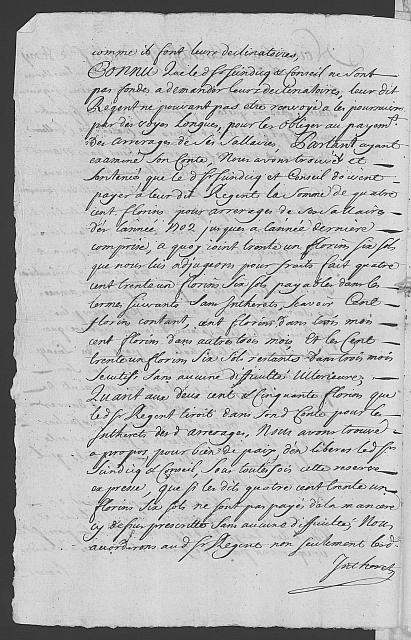 comme ils font leurs declinatoires,
Connu que le d.s Sindicq et Conseil ne sont
pas fondes a demander leurs declinatoires, leur dit
Regent ne pouvant pas etre renvoyé a les poursuivre
par des voyes Longues, pour les obliger au payem.t
des arrerages de ses sallaires, Partant ayant
examiné son Conte, Nous avons trouvé et
sentencié que le d.s Sindicq et Conseil doivent
payer a leur dit Regent la Somme de quatre
cent florins pour arrerages de ses sallaires
dès l'année 1702 jusques a l'année derniere
comprise, a quoy joint trente un florin six sols
que nous luy adjugeons pour fraits fait quatre
cent trente un florins Six sols payables dans les
termes suivants Sans Intherets, scavoir Cent
florins contant, cent florins dans trois mois
cent florins dans autres trois mois et les Cent
trente un florins Six Sols restants dans trois mois
Sans aucune difficulté Ulterieure,
Quant aux deux cent et Cinquante florins que
le d.s Regent tiroit dans son d Conte pour les
Intherets des d arrerages, Nous avons trouvé
a propos pour bien de paix d'en liberer le d.s
Sindicq et Conseil, sous toutes fois cette reserve
expresse, que si les dits quatre cent trente un
florins Six Sols ne sont pas payés de la maniere
cy dessus prescritte Sans aucune difficulté, Nous
accorderons au d. S.r Regent non seulement les d.
Intherets